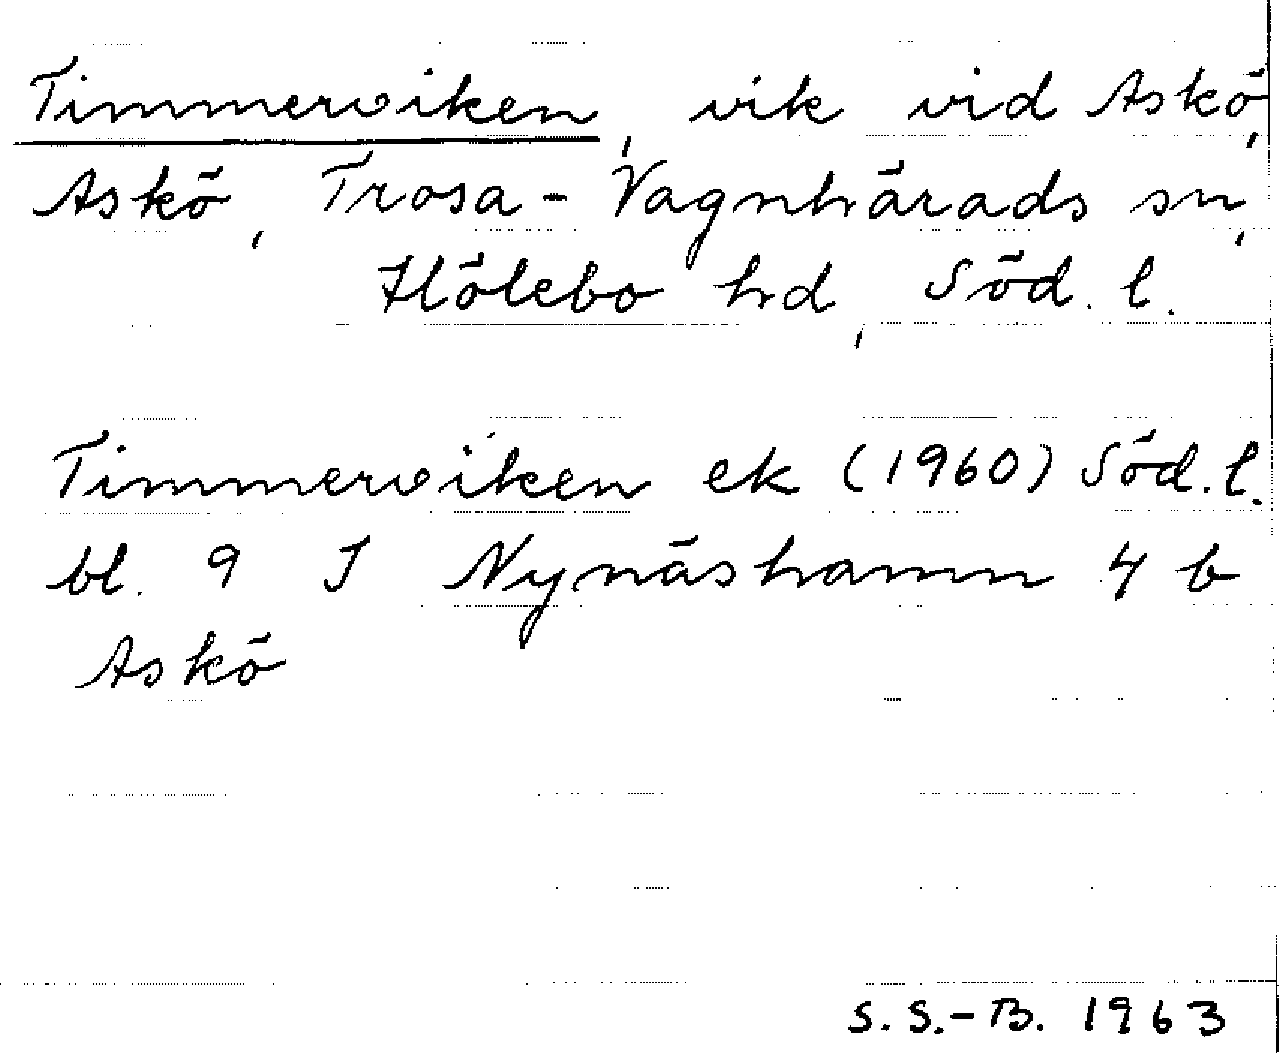 Timmerviken, vik vid Askö,
Askö, Trosa-Vagnhärads sn,
Hölebo hd, Söd. l.
Timmerviken ek (1960) Söd. l.
bl. 9 I Nynäshamn 4 b
Askö
S. S.-B. 1963